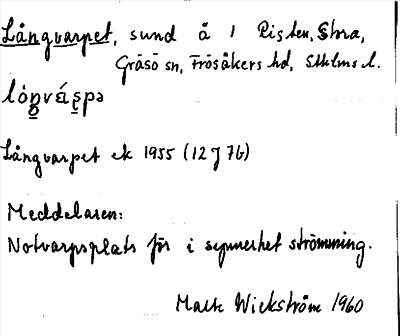 Långvarpet, sund å 1 Risten, Stora,
Gräsö sn, Frösåkers hd, Sthlms l.
Långvarpet ek 1955 (12 J 7b)
Meddelaren:
Notvarpsplats för i synnerhet strömming.
Mats Wickström 1960